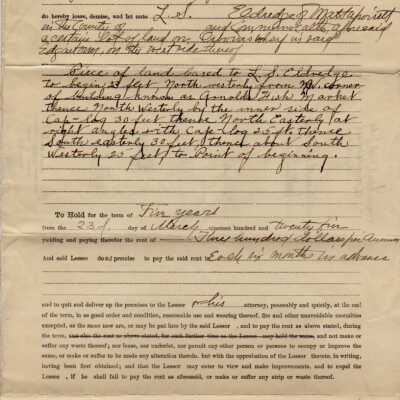 do hereby lease, demise, and let unto L. S. Eldredge of Mattapoisett
in the County of and Commonwealth aforesaid
a certain lot of land on in said
Edgartown, on the west side thereof
Piece of land leased to L. S. Eldredge
to begin 23 feet North westerly from N.W. corner
of Building known as Fish Market
thence North Westerly by the inner side of
Cap-Log 30 feet thence North Easterly at
right angles with Cap-Log 25 ft thence
South easterly 30 feet, thence about South
Westerly 25 feet to Point of beginning.
To Hold for the term of Five years
from the 23d day of March nineteen hundred and twenty five
yielding and paying therefor the rent of Three hundred dollars per Annum
And said Lessor does promise to pay the said rent in Each six months in advance
and to quit and deliver up the premises to the Lessor or his attorney, peaceably and quietly, at the end
of the term, in as good order and condition, reasonable use and wearing thereof, fire and other unavoidable casualties
excepted, as the same now are, or may be put into by the said Lessor , and to pay the rent as above stated, during
the term, and also the rent as above stated, for such further time as the Lessee may hold the same, and not make or
suffer any waste thereof; nor lease, nor underlet, nor permit any other person or persons to occupy or improve the
same, or make or suffer to be made any alteration therein, but with the approbation of the Lessor thereto, in writing,
having been first obtained; and that the Lessor may enter to view and make improvements, and to expel the
Lessee , if he shall fail to pay the rent as aforesaid, or make or suffer any strip or waste thereof.